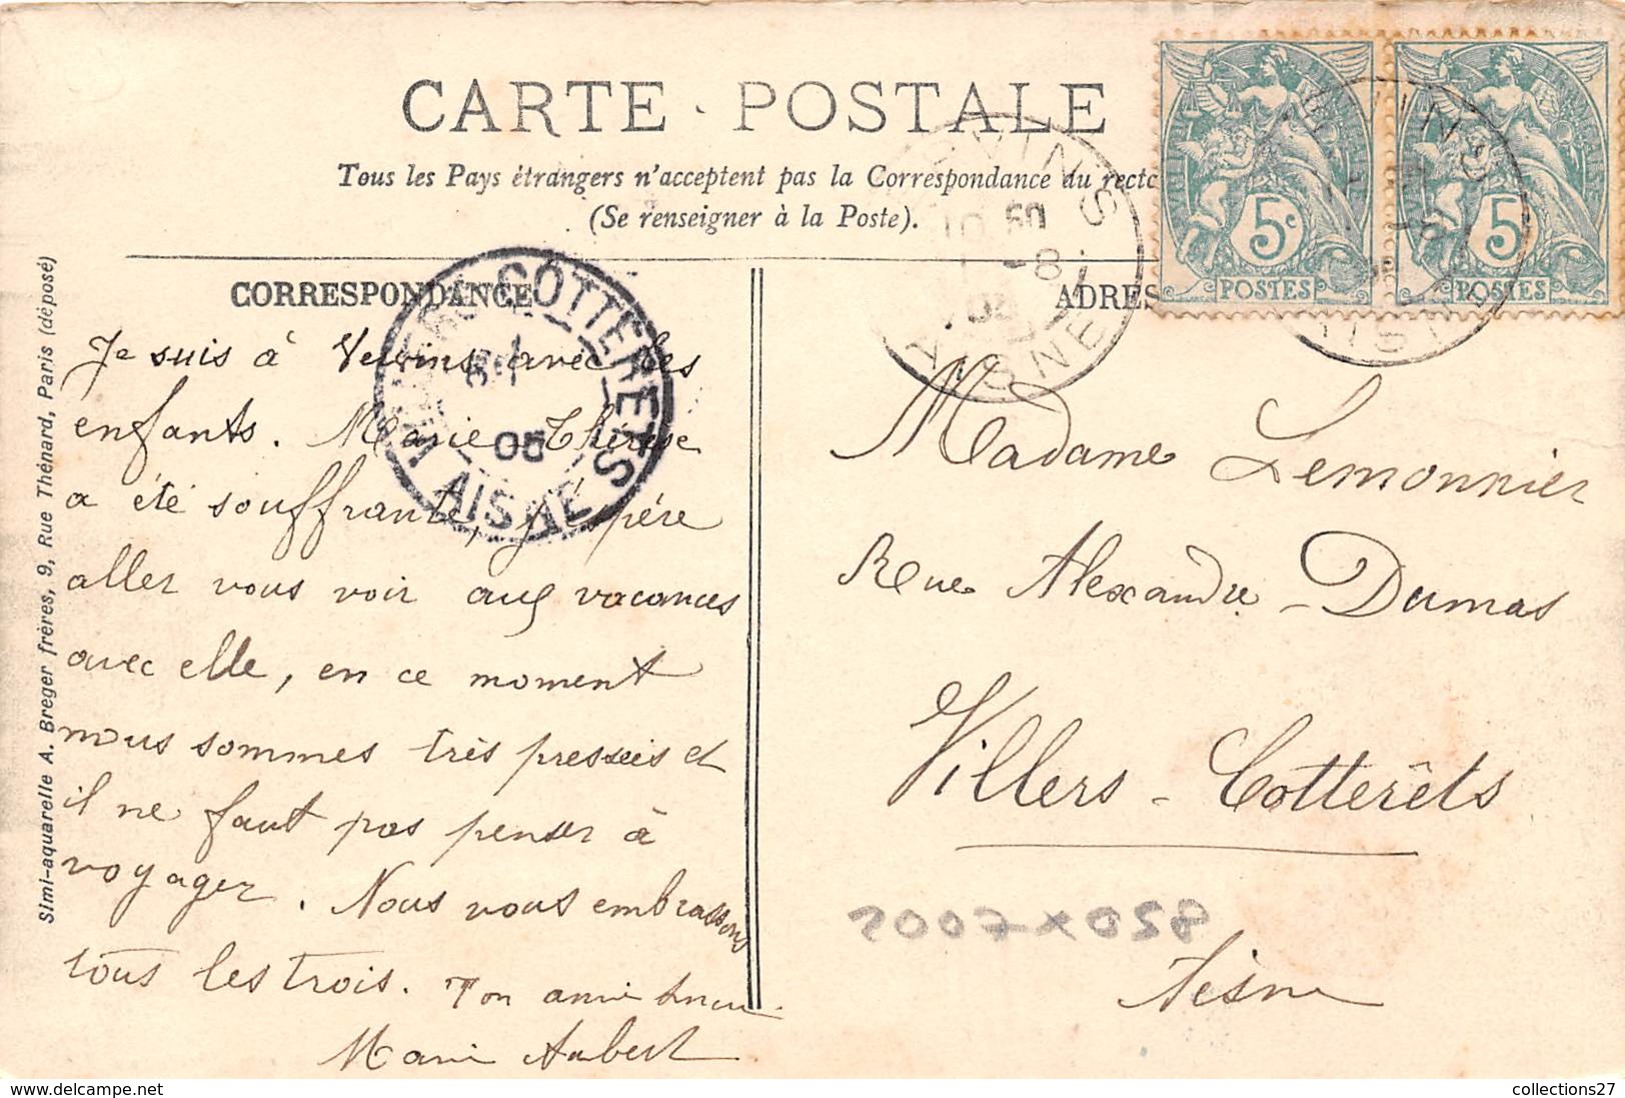 CARTE POSTALE
Tous les Pays étrangers n'acceptent pas la Correspondance au recto
(Se renseigner à la Poste).
CORRESPONDANCE
Je suis à Vervins avec les
enfants. Marie-Thérèse
a été souffrante, j'espère
aller vous voir aux vacances
avec elle, en ce moment
nous sommes très pressées et
il ne faut pas penser à
voyager. Nous vous embrassons
tous les trois. Ton amie
Marie Aubert
Simi-aquarelle A. Breger frères, 9, Rue Thénard, Paris (déposé)
COTTERETS
AISNE
05
ADRES
VERVINS
AISNE
5c
POSTES
5
POSTES
Madame Lemonnier
Rue Alexandre-Dumas
Villers-Cotterêts
Aisne
collections27